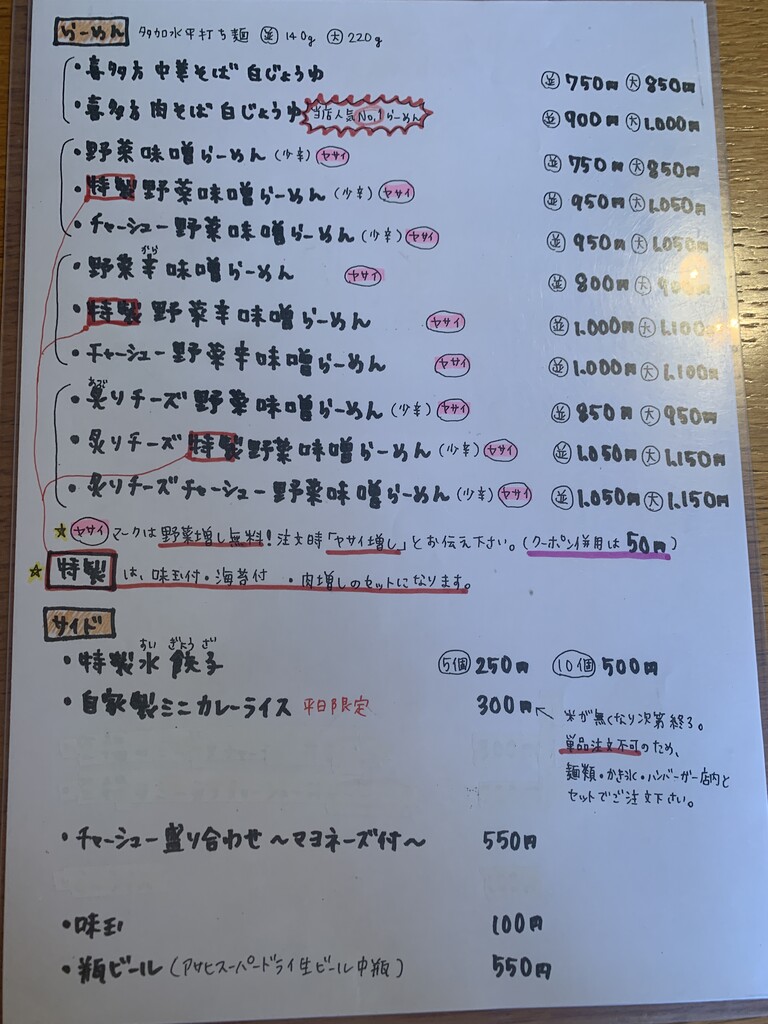 らーめん 多加水平打ち麺 並 140g 大 220g
・喜多方 中華そば 白じょうゆ 並 750円 大 850円
・喜多方 肉そば 白じょうゆ 当店人気No.1らーめん 並 900円 大 1,000円
・野菜味噌らーめん (少辛) ヤサイ 並 750円 大 850円
・特製 野菜味噌らーめん (少辛) ヤサイ 並 950円 大 1,050円
・チャーシュー野菜味噌らーめん (少辛) ヤサイ 並 950円 大 1,050円
から
・野菜辛味噌らーめん ヤサイ 並 800円 大 900円
・特製 野菜辛味噌らーめん ヤサイ 並 1,000円 大 1,100円
・チャーシュー野菜辛味噌らーめん ヤサイ 並 1,000円 大 1,100円
あぶ
・炙りチーズ野菜味噌らーめん (少辛) ヤサイ 並 850円 大 950円
・炙りチーズ特製野菜味噌らーめん (少辛) ヤサイ 並 1,050円 大 1,150円
・炙りチーズチャーシュー野菜味噌らーめん (少辛) ヤサイ 並 1,050円 大 1,150円
★ ヤサイ マークは野菜増し無料!注文時「ヤサイ増し」とお伝え下さい。(クーポン併用は50円)
★ 特製 は、味玉付・海苔付 ・肉増しのセットになります。
サイド
すい ぎょう ざ
・特製水餃子 5個 250円 10個 500円
・自家製ミニカレーライス 平日限定 300円
米が無くなり次第終了。
単品注文不可のため、
麺類・かき氷・ハンバーガー店内と
セットでご注文下さい。
・チャーシュー盛り合わせ〜マヨネーズ付〜 550円
・味玉 100円
・瓶ビール (アサヒスーパードライ生ビール中瓶) 550円